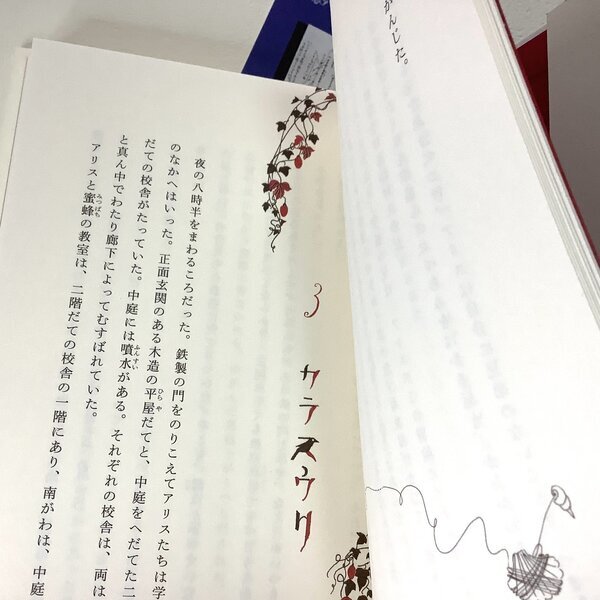 がんじた。
3 カラスウリ
夜の八時半をまわるころだった。鉄製の門をのりこえてアリスたちは学
のなかへはいった。正面玄関のある木造の平屋だてと、中庭をへだてた二
だての校舎がたっていた。中庭には噴水がある。それぞれの校舎は、両は
と真ん中でわたり廊下によってむすばれていた。
アリスと蜜蜂の教室は、二階だての校舎の一階にあり、南がわは、中庭